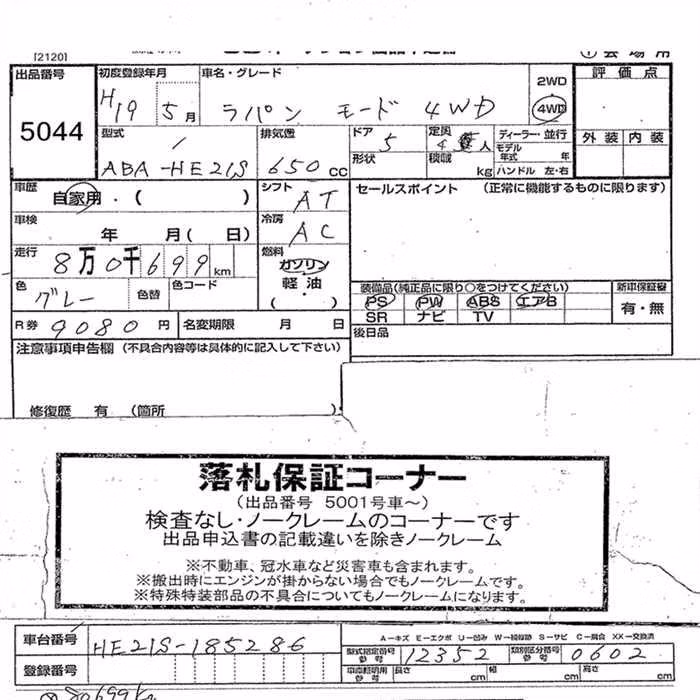 [2120]
① 会場用
出品番号 初度登録年月 車名・グレード 2WD 評価点
5044 H19 5月 ラパン モード 4WD 4WD
型式 排気量 ドア 定員 ディーラー・並行 外装 内装
ABA-HE21S 650cc 5 4人 モデル年式 年
形状 積載 kg ハンドル 左・右
車歴 自家用・( ) シフト AT セールスポイント (正常に機能するものに限ります)
車検 年 月(日) 冷房 AC
走行 8万0千699km 燃料 ガソリン
軽油
( ・ )
色 グレー 色替 色コード 装備品(純正品に限り○をつけてください) 新車保証書
PS PW ABS エアB 有・無
SR ナビ TV
R券 9080円 名変期限 月 日 後日品
注意事項申告欄 (不具合内容等は具体的に記入して下さい)
修復歴 有 (箇所 )
落札保証コーナー
(出品番号 5001号車〜)
検査なし・ノークレームのコーナーです
出品申込書の記載違いを除きノークレーム
※不動車、冠水車など災害車も含まれます。
※搬出時にエンジンが掛からない場合でもノークレームです。
※特殊特装部品の不具合についてもノークレームになります。
車台番号 HE21S-185286 A-キズ E-エクボ U-凹み W-補修跡 S-サビ C-腐食 XX-交換済
型式指定番号 参考 12352 類別区分番号 参考 0602
登録番号 車庫証明用 参考 長さ cm 幅 cm 高さ cm
80699km